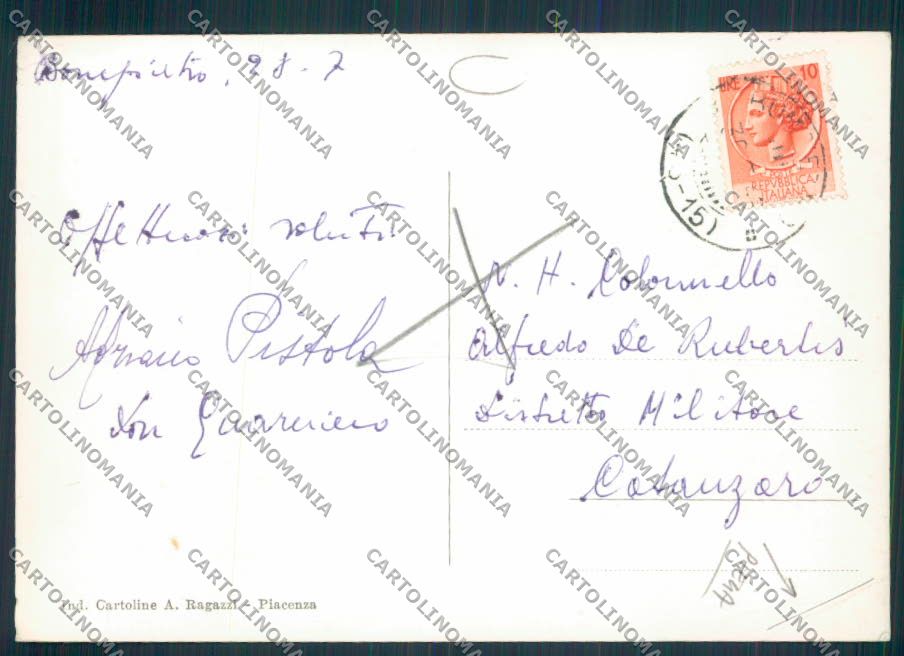 28-7
Affettuosi saluti
Adriano Pistola
Don Guarniero
N. H. Colonnello
Alfredo De Rubertis
Distretto Militare
Catanzaro
LIRE 10
REPVBBLICA
ITALIANA
(CZ)
(-15)
PIEGA
Ind. Cartoline A. Ragazzi - Piacenza
CARTOLINOMANIA